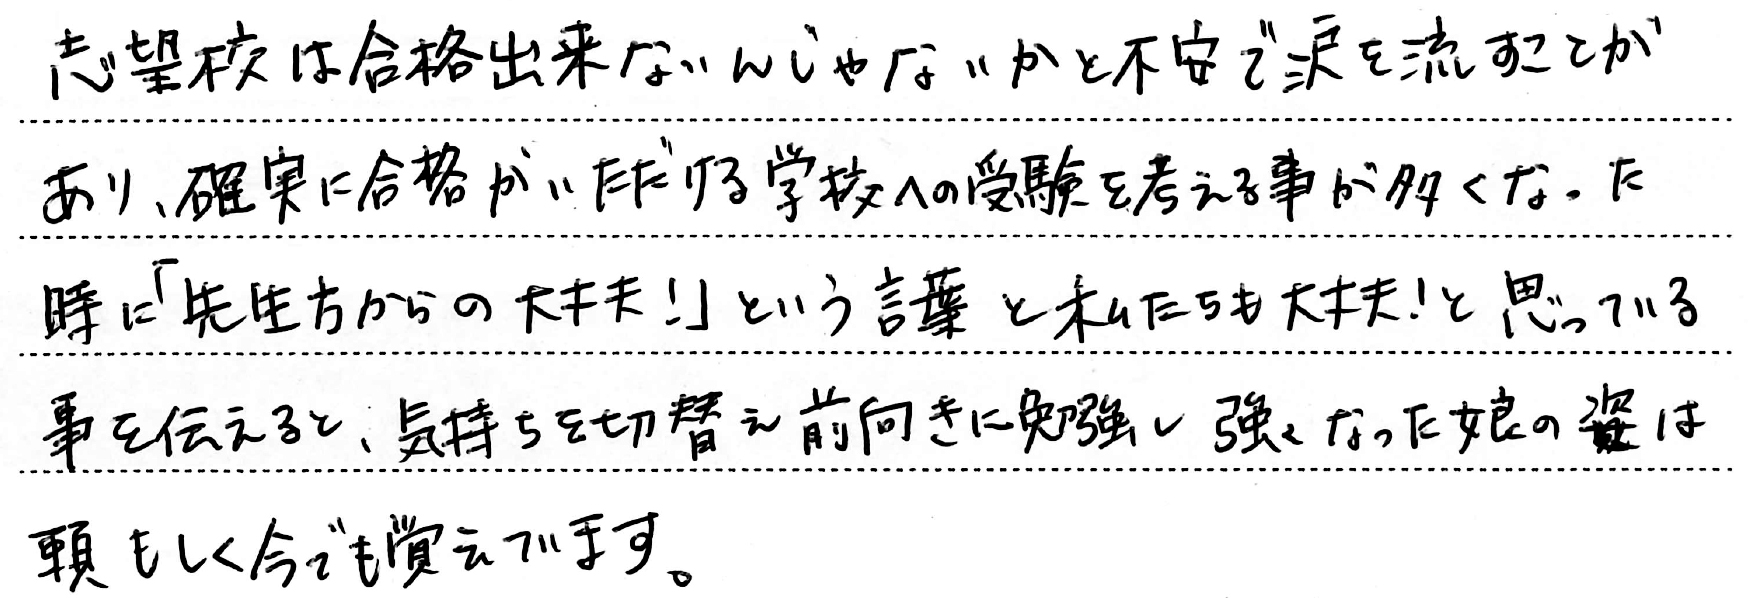 志望校は合格出来ないんじゃないかと不安で涙を流すことが
あり、確実に合格がいただける学校への受験を考える事が多くなった
時に「先生方からの大丈夫!」という言葉と私たちも大丈夫!と思っている
事を伝えると、気持ちを切替え前向きに勉強し強くなった娘の姿は
頼もしく今でも覚えています。